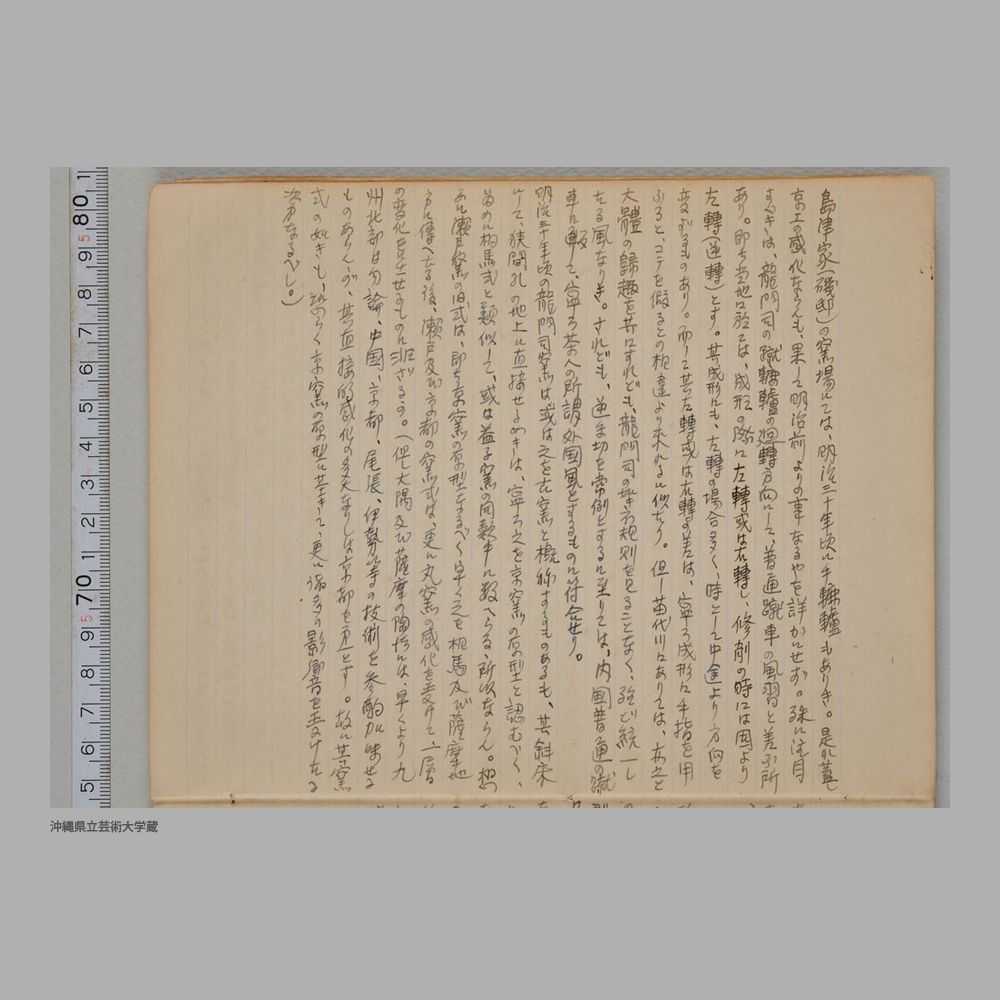 島津家(磯邸)の窯場にては、明治三十年頃に手轆轤もありき。是れ蓋し
京工の感化ならんも、果して明治前よりの事なるやを詳かにせず。殊に注目
すべきは、龍門司の蹴轆轤の廻轉方向にして、普通蹴車の風習と差ふ所
あり。即ち当地に於ては、成形の際に左轉或は右轉し、修削の時には固より
左轉(逆轉)とす。其成形にも、左轉の場合多く、時として中途より方向を
変ずるものあり。而して其左轉或は右轉の差は、寧ろ成形に手指を用
ふると、コテを假るとの相違より来れるに似たり。但し苗代川にありては、右之と
大體の歸趣を共にすれども、龍門司の如き規則を見ることなく、強ど統一し
たる風なりき。されども、逆ま切を常例とするに至りては、内国普通の蹴
車に戻して、寧ろ茶への所謂外国風とするものに符合せり。
明治三十年頃の龍門司窯は或は之を古窯と概称するものあるも、其斜床
にして、狭間孔の地上に直接せるめきは、寧ろ之を京窯の原型と認むべく、
為めに相馬式と類似して、或は益子窯の同款中に数へらる、所以ならん。想
ふに瀬戸窯の旧式は、即ち京窯の原型なるべく、早く之を相馬及び薩摩地
方に傳へたる後、瀬戸及び京都の窯式は、更に丸窯の感化を受けて一層
の変化を呈せるものに涯ざるか。(但し大隅及び薩摩の陶術は、早くより九
州北部は勿論、中国、京都、尾張、伊勢等の技術を参酌加味せる
ものあらんが、其直接的感化の多大なりしは京都を更とす。故に其窯
式の如きも、恐らく京窯の原型に基きて、更に海多の影響を受けたる
次第なるべし。)
80
70
沖縄県立芸術大学蔵